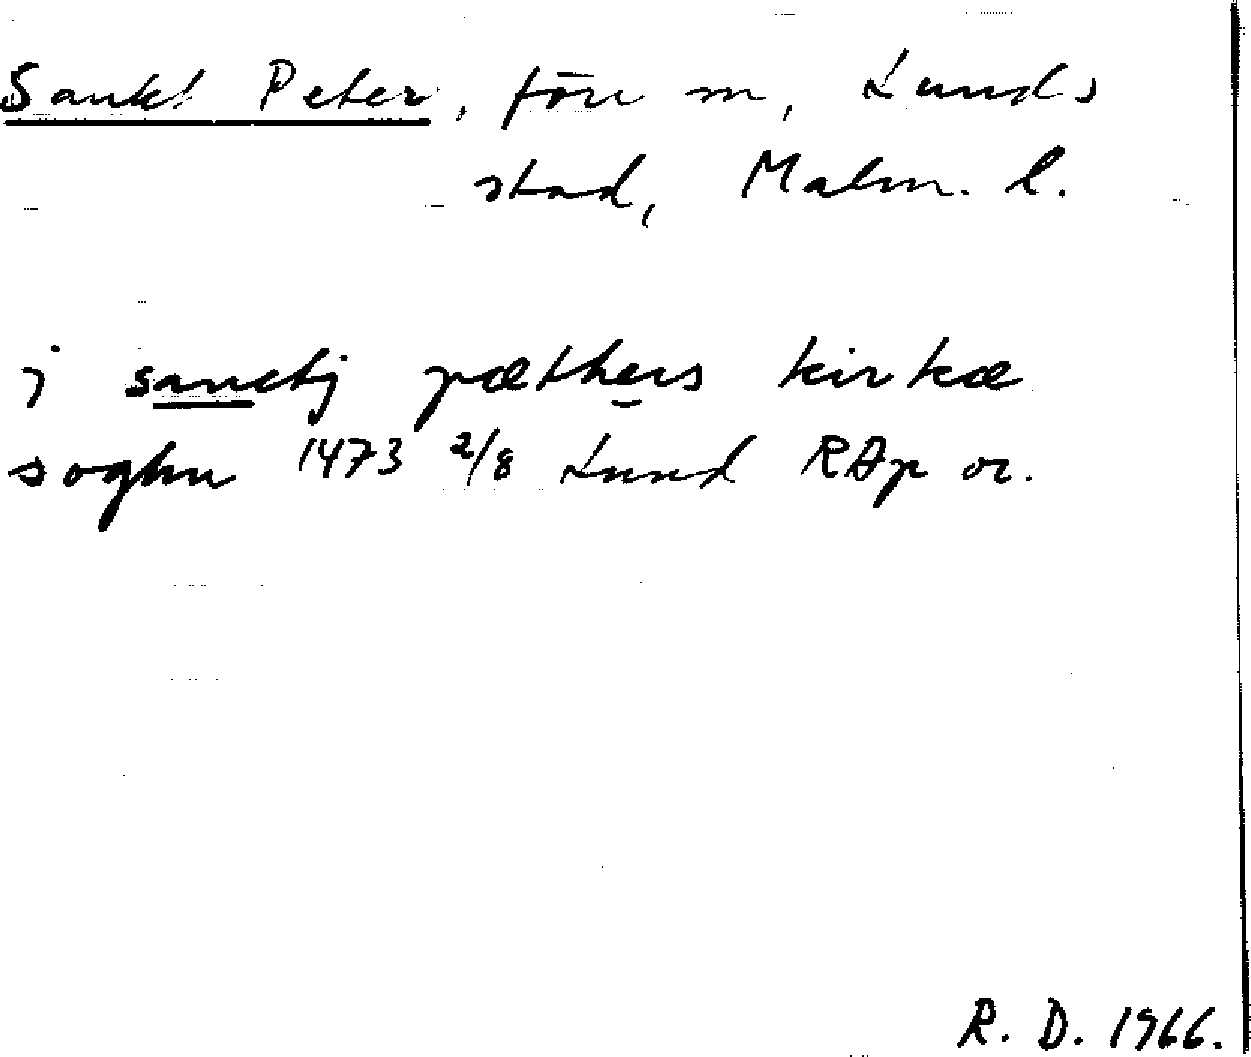 Sankt Peter, förr sn, Lunds
stad, Malm. l.
j sanctj pæthers kirkæ
soghn 1473 2/8 Lund RAp or.
R. D. 1966.